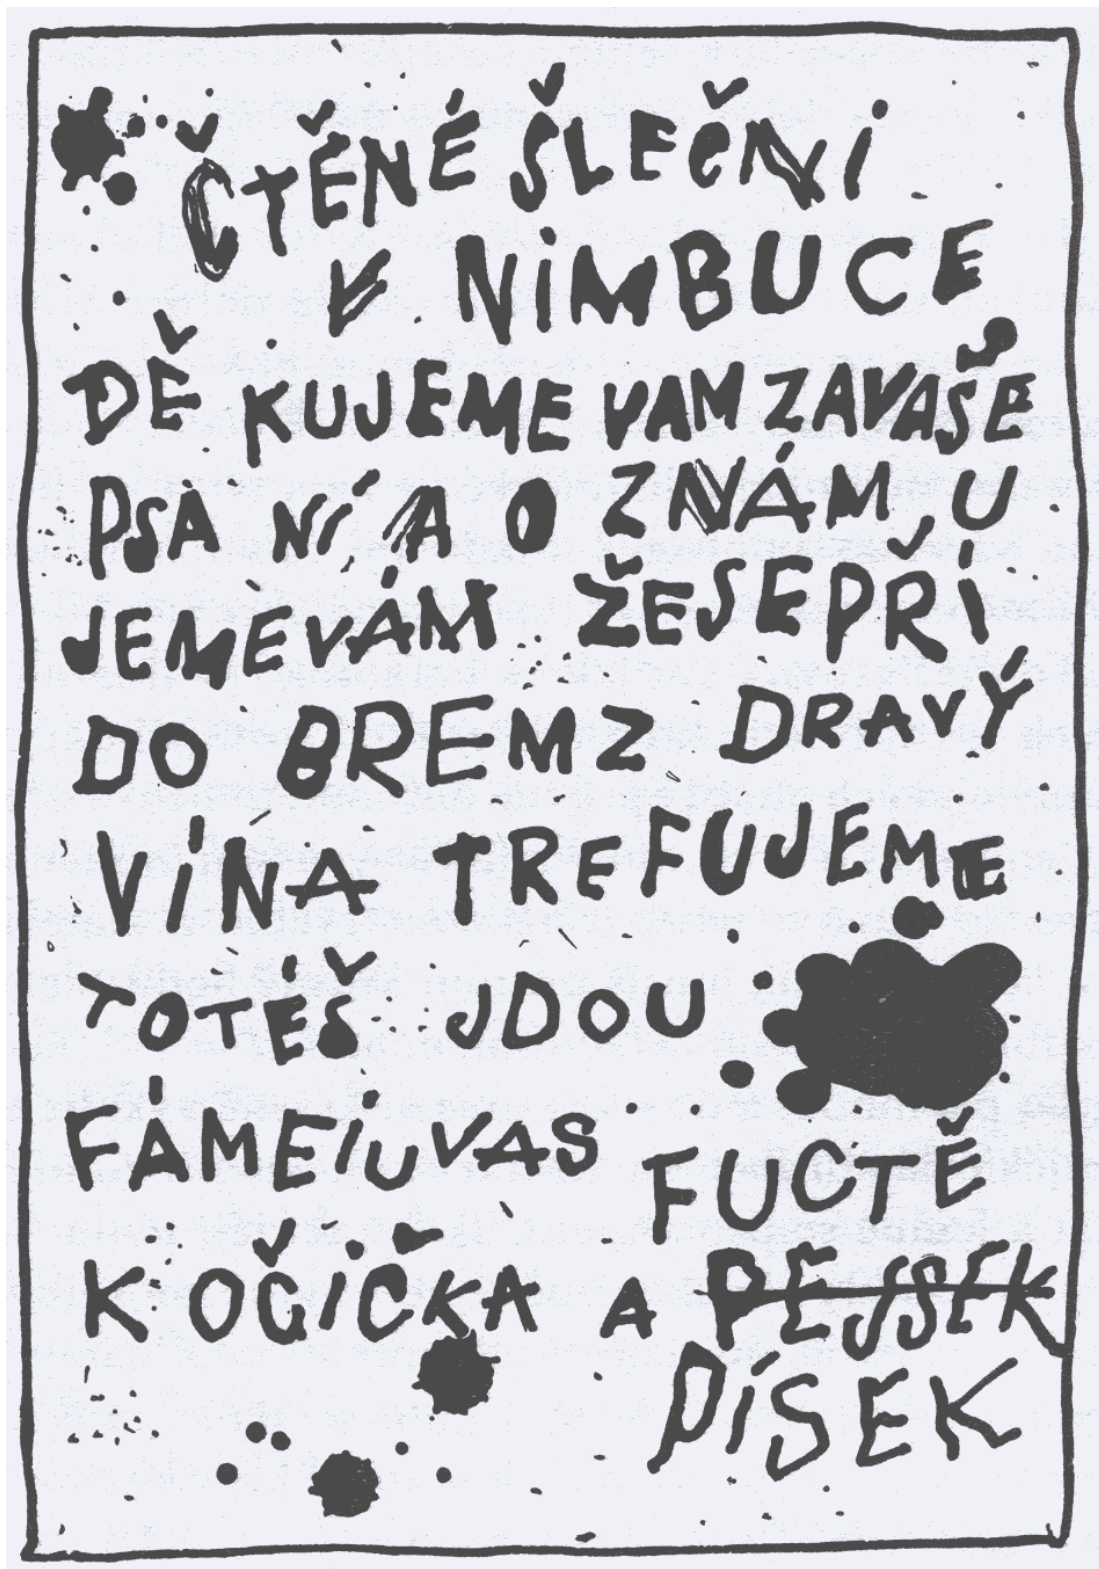 ČTĚNÉ ŠLEČNI
V NiMBUCE
DĚ KUJEME VAM ZAVAŠE
PSA NÍ A O ZNÁM,U
JEMEVÁM ŽESEPŘÍ
DO BREMZ DRAVÝ
VÍNA TREFUJEME
TOTÉŠ JDOU
FÁMEIUVAS FUCTĚ
K OČIČKA A PEJSSEK
PÍSEK